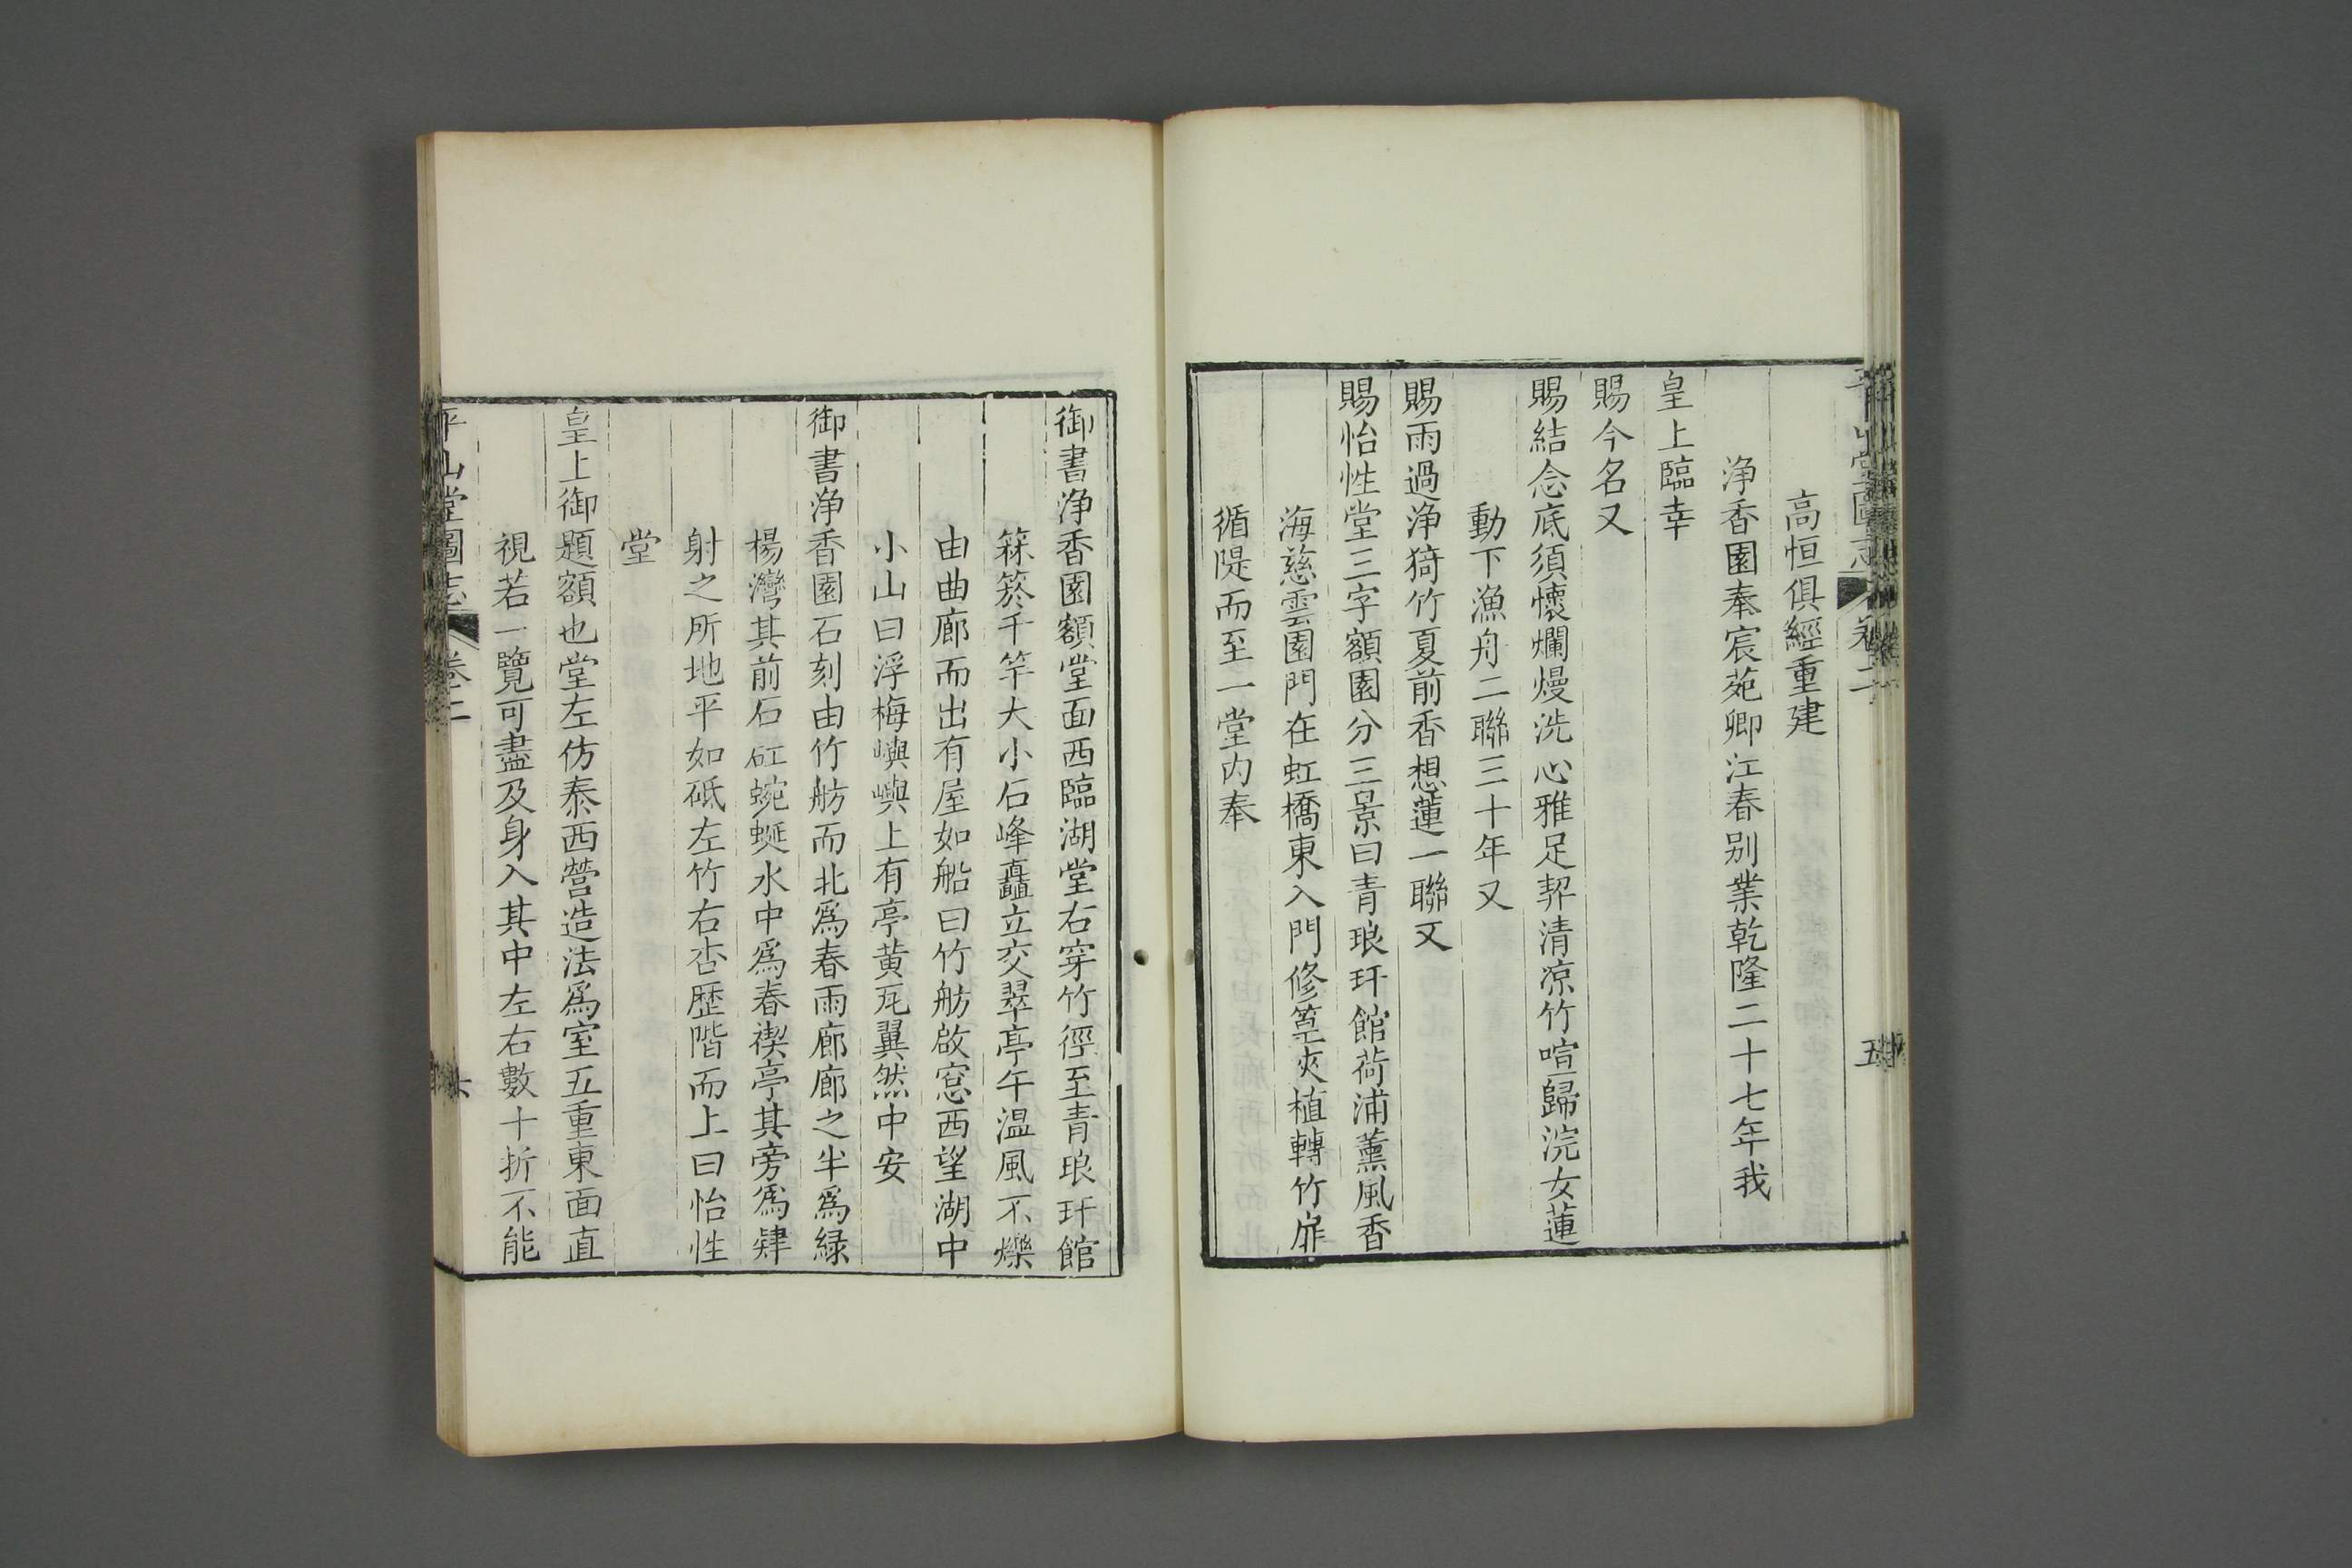 高恒俱經重建
浄香園奉宸苑卿江春别業乾隆二十七年我
皇上臨幸
賜今名又
賜結念底須懷爛熳洗心雅足契清凉竹喧歸浣女蓮
動下漁舟二聯三十年又
賜雨過浄猗竹夏前香想蓮一聯又
賜怡性堂三字額園分三景曰青琅玕館荷浦薰風香
海慈雲園門在虹橋東入門修篁夾植轉竹扉
循隄而至一堂内奉
御書浄香園額堂面西臨湖堂右穿竹徑至青琅玕館
箖箊千竿大小石峰矗立交翠亭午温風不爍
由曲廊而出有屋如船曰竹舫啟窓西望湖中
小山曰浮梅嶼嶼上有亭黄瓦翼然中安
御書浄香園石刻由竹舫而北爲春雨廊廊之半爲緑
楊灣其前石矼蜿蜒水中爲春禊亭其旁爲肄
射之所地平如砥左竹右杏歴階而上曰怡性
堂
皇上御題額也堂左仿泰西營造法爲室五重東面直
視若一覽可盡及身入其中左右數十折不能
平山堂圖志 卷二